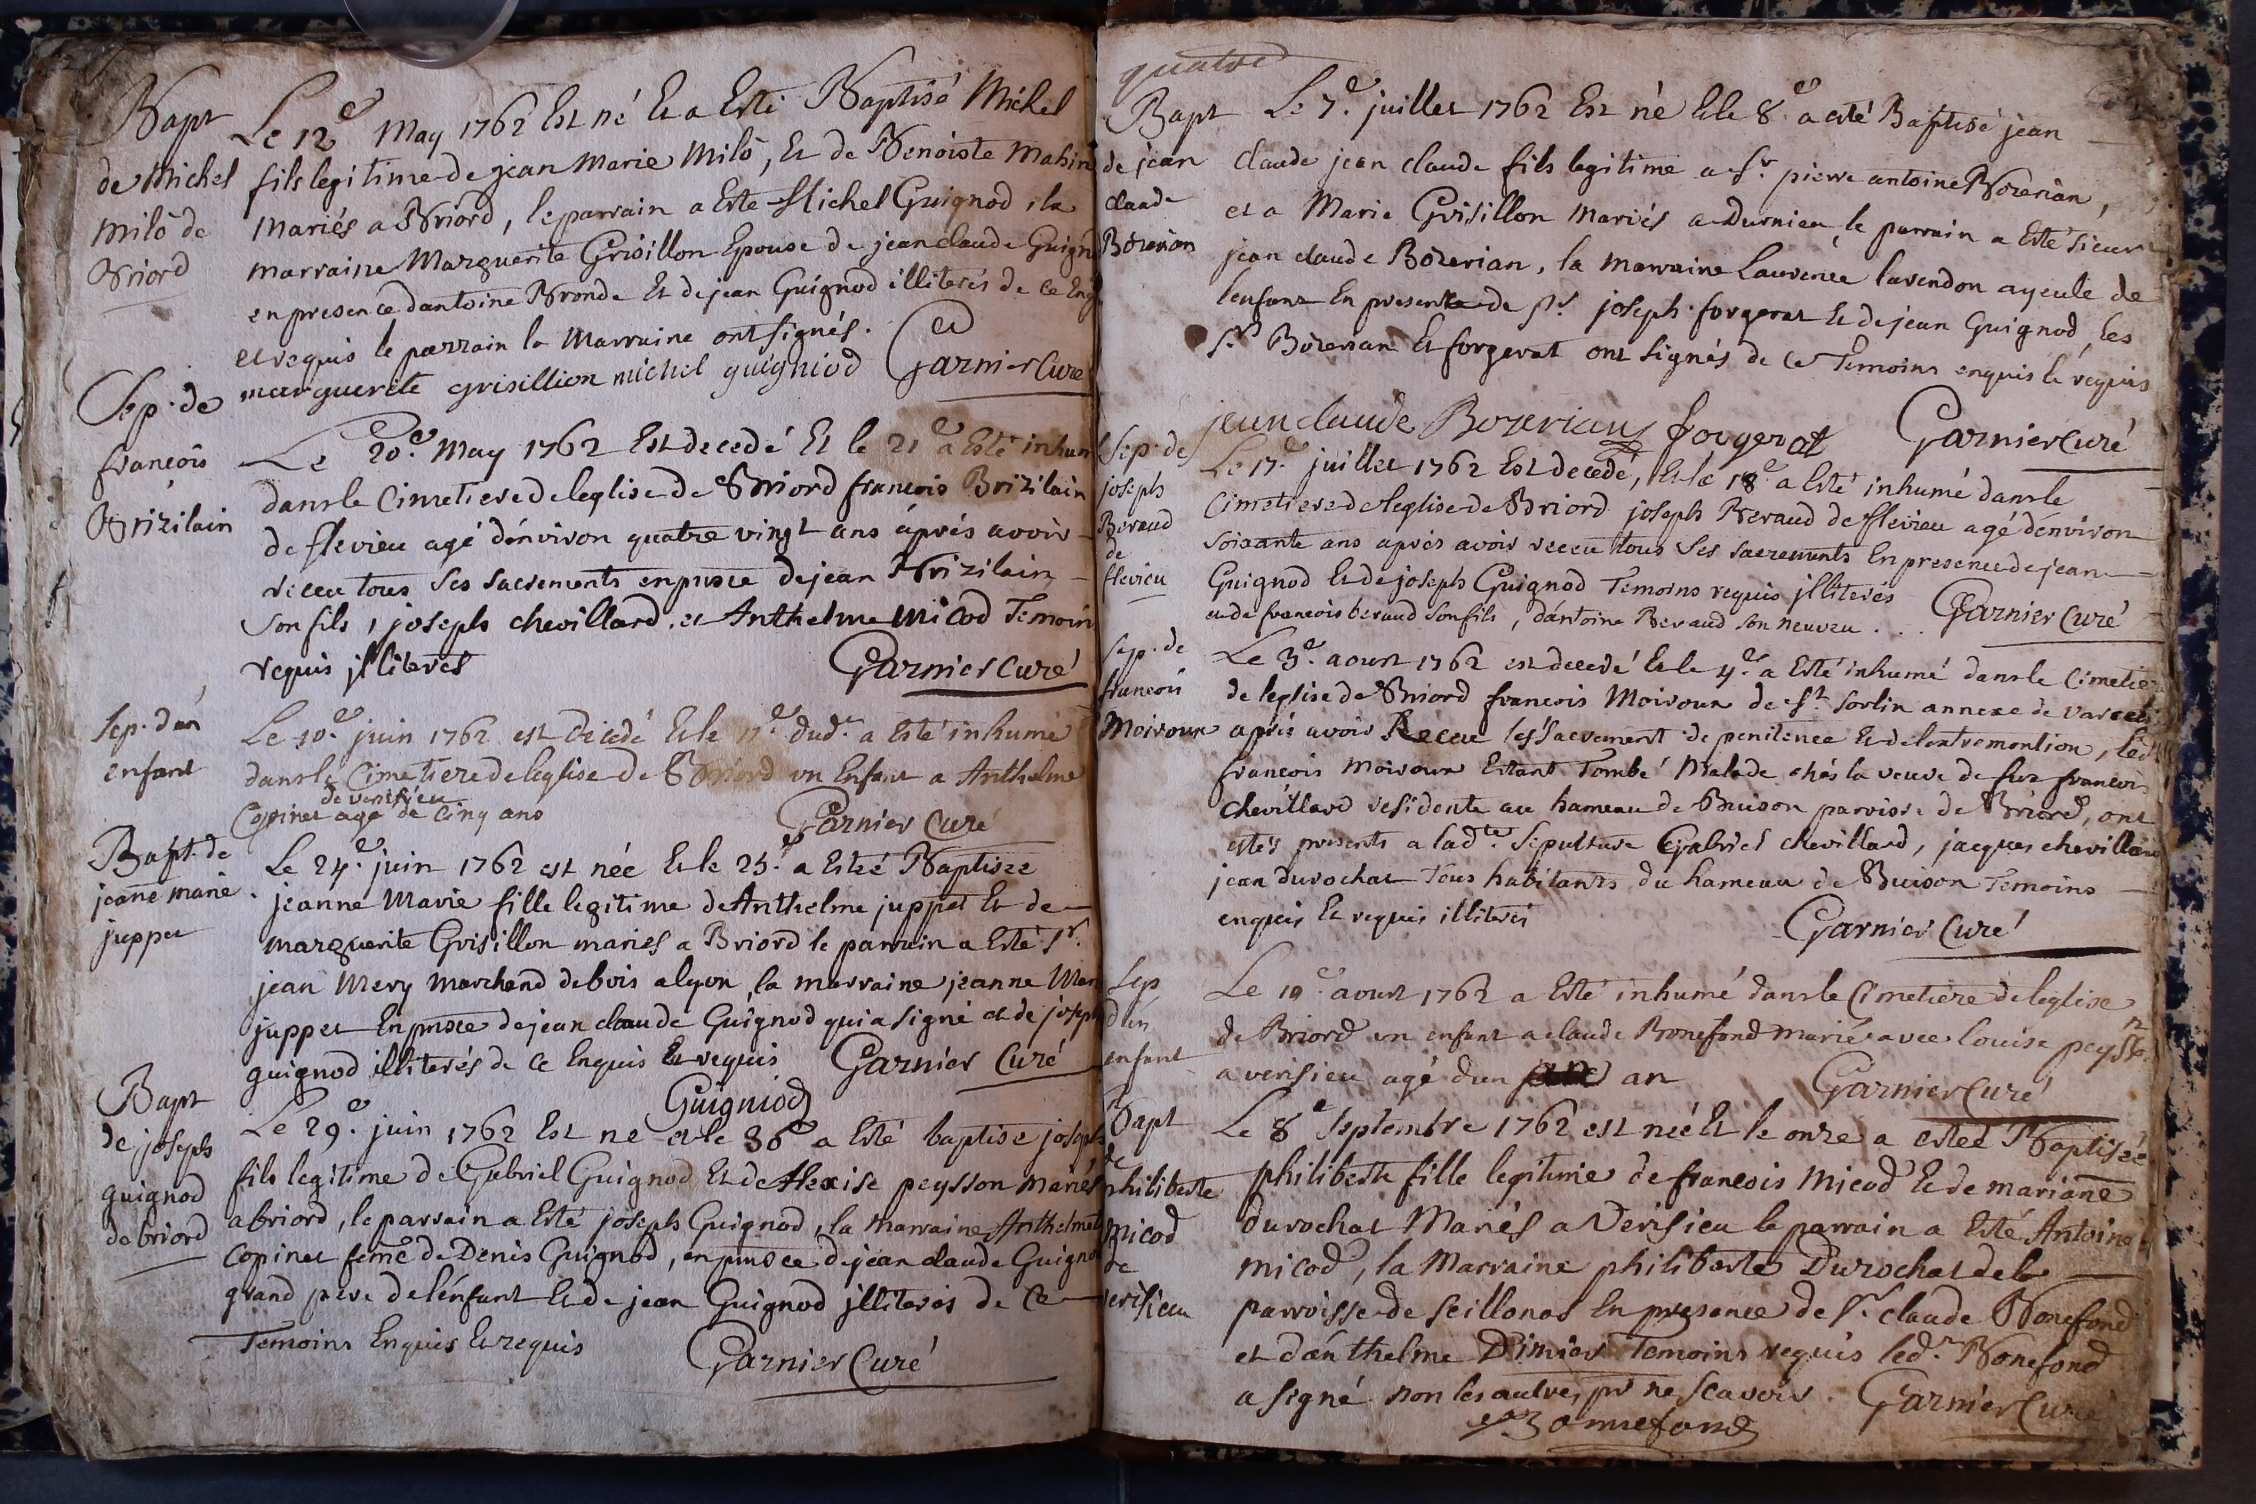 Bapt
de Michel
Milô de
Briord
Le 12e May 1762 Est né Et a Esté Baptisé Michel
fils legitime de jean Marie Milô, Et de Benoiste Mahin
Mariés a Briord, le parrain a Este Michel Guignod, la
marraine Marguerite Grisillon Epouse de jean claude Guign
en presence dantoine Bronde Et de jean Guignod illiterés de ce Enq
et requis le parrain la Marraine ont signés.
marguerite grisillion michel guigniod Garnier Curé
Sep. de
francois
Brizilain
Le 20e May 1762 Est decedé Et le 21e a Esté inhum
dans le Cimetiere de leglise de Briord francois Brizilain
de flevieu agé dénviron quatre vingt ans áprés avoir
receu tous ses sacrements en pnsce de jean Brizilain
son fils, joseph chevillard, et Anthelme Micod Temoin
requis jlliterés
Garnier Curé
Sep. d'un
enfant
Le 10e juin 1762 est décédé Et le 11e dud. a Esté inhumé
dans le Cimetiere de leglise de Briord un Enfant a Anthelme
de verisieu
Copinet agé de Cinq ans
Garnier Curé
Bapt. de
jeanne marie
juppet
Le 24e juin 1762 est née Et le 25e a Esté Baptisée
jeanne Marie fille legitime de Anthelme juppet Et de
marguerite Grisillon mariés a Briord le parrain a Esté Sr.
jean Mery Marchand de bois a lyon, la marraine jeanne Mar
juppet En pnsce de jean claude Guignod qui a signé et de joseph
guignod illiterés de ce Enquis Et requis Garnier Curé
Guigniod
Bapt
de joseph
guignod
de briord
Le 29e juin 1762 Est né et le 30e a Esté baptisé joseph
fils legitime de Gabriel Guignod Et de Alexise peysson mariés
a briord, le parrain a Esté joseph Guignod, la Marraine Anthelmet
Copinet feme de Denis Guignod, en pnsce de jean claude Guignod
grand pere de l'énfant Et de jean Guignod jlliterés de Ce
Temoins Enquis Et requis
Garnier Curé
quatre
Bapt
de jean
claude
Bozerian
Le 7e juillet 1762 Est né Et le 8e a esté Baptisé jean
claude jean claude fils legitime a Sr. pierre antoine Bozerian,
et a Marie Grisillon Mariés a Durnieu, le parrain a Esté sieur
jean claude Bozerian, la Marraine Laurence lavendon ayeule de
lenfant En presence de Sr. joseph forgerat Et de jean Guignod, les
Srs Bozerian Et forgerat ont signés de Ce Temoins enquis Et requis
jean claude Bozerian forgerat Garnier Curé
Sep. de
joseph
Beraud
de
flevieu
Le 17e juillet 1762 Est decedé, Et le 18e a Esté inhumé dans le
Cimetiere de leglise de Briord joseph Beraud de flevieu agé dénviron
soixante ans aprés avoir receu tous ses sacrements En presence de jean
Guignod Et de joseph Guignod Temoins requis jlliterés
et de francois beraud son fils, d'antoine Beraud son neuveu.
Garnier Curé
Sep. de
francois
Moiroux
Le 3e aoust 1762 est decedé Et le 4e a Esté inhumé dans le Cimetie
de leglise de Briord francois Moiroux de St. Sorlin annexe de
aprés avoir Receu les sacrement de penitence Et de lextremontion, led
francois Moiroux Estant Tombé Malade chés la veuve de feu francois
Chevillard residente au hameau de Buison parroisse de Briord, ont
estés presents a ladte. Sepulture Gabriel chevillard, jacques chevillard
jean durochat Tous habitants du hameau de Buison Temoins
enquis Et requis illiterés
Garnier Curé
Sep
d'un
enfant
Le 19e aoust 1762 a Esté inhumé dans le Cimetiere de leglise
de Briord un enfant a claude Bonefond marié avec louise peysson
a verisieu agé d'un an
Garnier Curé
Bapt
de
philiberte
Micod
de
verisieu
Le 8e Septembre 1762 est née Et le onze a esteé Baptisée
philiberte fille legitime de francois Micod Et de mariane
durochat Mariés a Verisieu le parrain a Esté Antoine
micod, la Marraine philiberte Durochat de la
parroisse de Seillonas En presence de Sr claude Bonefond
et d'énthelme Dimier Temoins requis ledt. Bonefond
a signé non les autres pr ne scavoir. Garnier Curé
Bonnefond